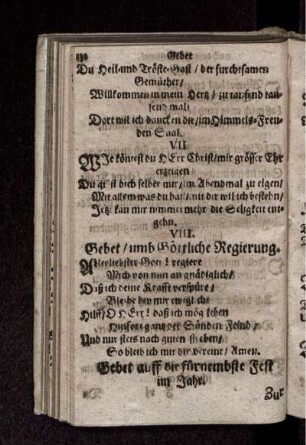 Gebet
Du Heil-und Tröste-Gast / der furchtsamen
Gemüther /
Willkommen in mein Hertz / zu tausend tau-
send mal /
Dort wil ich dancken dir / im Himmels-Freu-
den Saal.
VII
WJe köntest du HErr Christ / mir grösser Ehr
erzeigen
Du gibst dich selber mir / im Abendmal zu eigen /
Mit allem was du hast / mit der wil ich bestehn /
Jetzt kan mir nimmermehr die Seligkeit ent-
gehn.
VIII.
Gebet / umb Göttliche Regierung.
Allerliebster Gott! regiere
Mich von nun an gnädiglich /
Daß ich deine Krafft verspüre /
Bleibe bey mir ewiglich /
Hilff / O HErr! daß ich mög leben
Hinfort gantz der Sünden Feind /
Und nur stets nach guten streben /
So bleib ich mit dir vereint / Amen.
Gebet auff die fürnembste Fest
im Jahr.
Zur